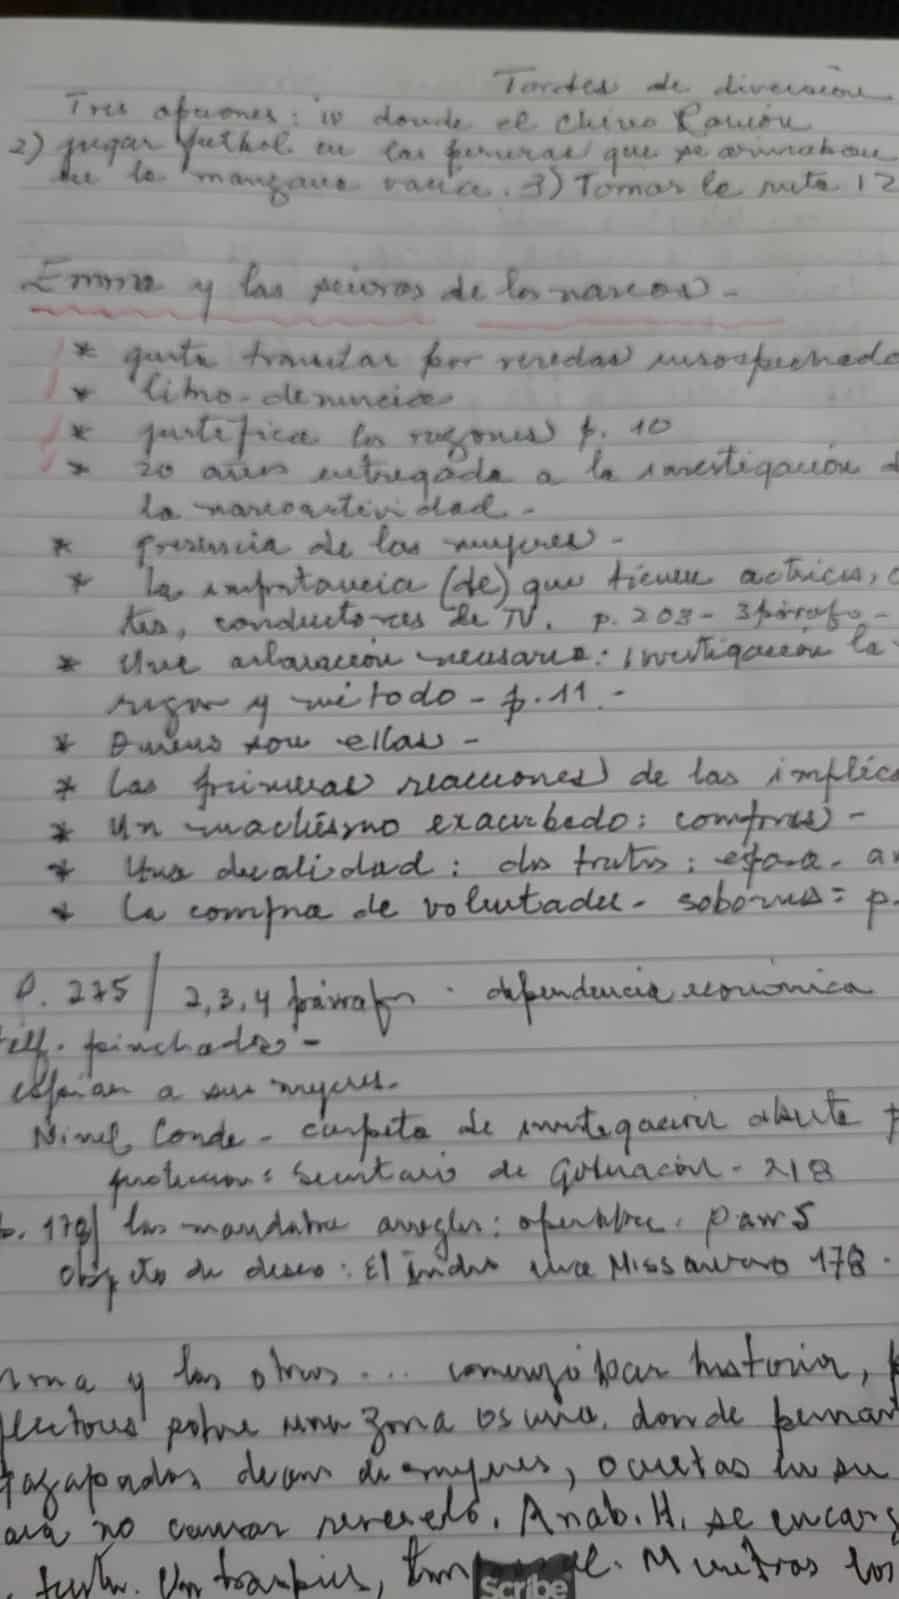 Tardes de diversión
Tres opciones: ir donde el chivo Ramón
2) jugar futbol en las que se armaban
en la manzana vacía. 3) Tomar la ruta 12
Emma y las señoras de los narcos-
* gusta transitar por veredas insospechado
* libro-denuncia
* justifica las razones p. 10
* 20 años entregada a la investigación d
la narcoactividad-
* presencia de las mujeres-
* la importancia (de) que tienen actrices, c
tes, conductoras de TV. p. 208- 3párrafo-
* Una aclaración necesaria: investigación la
rigor y método- p.11.-
* Quienes son ellas-
* Las primeras reacciones de las implica
* Un machismo exacerbado: compras-
* Una dualidad: dos tratos: esposa- am
* La compra de voluntades- sobornos= p.
p. 275/ 2,3,4 párrafos · dependencia económica
telf. pinchados-
espían a sus mujeres.
Ninel Conde- carpeta de investigación abierta p
protección: Secretario de Gobernación- 218
p. 178/ las mandaba arreglar: operarse. parr 5
objeto de deseo: El Indio una Miss 178.
mma y las otras... comenzó par historia, p
lectores sobre una zona oscura, donde perman
agazapadas decenas de mujeres, ocultas en su
ara no causar revuelo. Anab. H. se encarg
Mientras los
Scribe